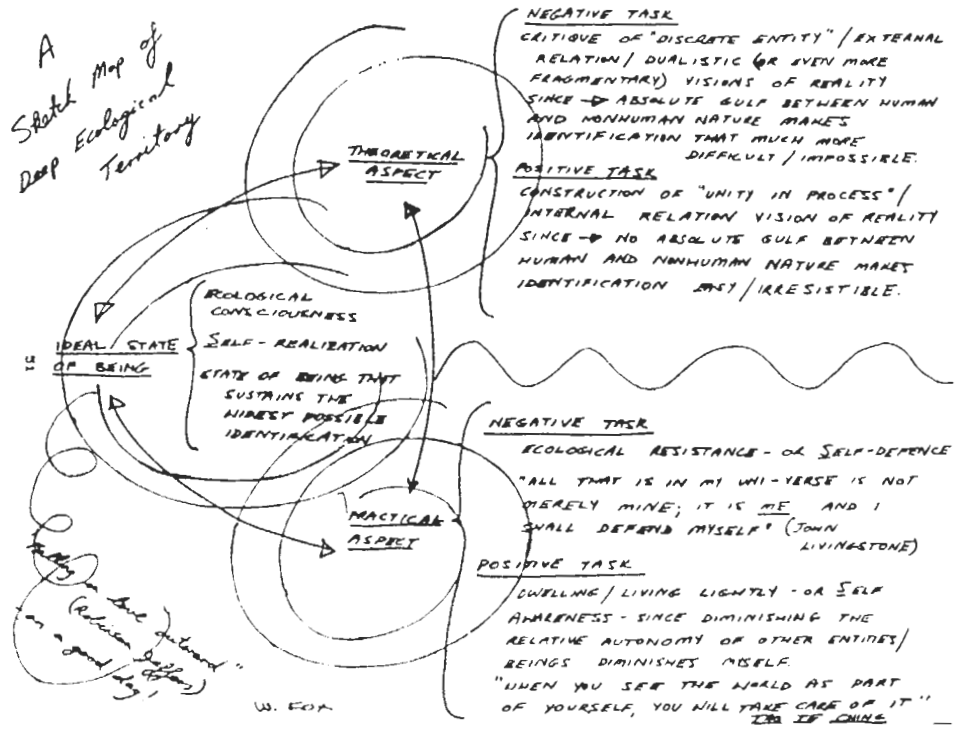 A
Sketch Map of
Deep Ecological
Territory
NEGATIVE TASK
CRITIQUE OF "DISCRETE ENTITY" / EXTERNAL
RELATION / DUALISTIC (OR EVEN MORE
FRAGMENTARY) VISIONS OF REALITY
SINCE → ABSOLUTE GULF BETWEEN HUMAN
AND NONHUMAN NATURE MAKES
IDENTIFICATION THAT MUCH MORE
DIFFICULT / IMPOSSIBLE.
POSITIVE TASK
CONSTRUCTION OF "UNITY IN PROCESS" /
INTERNAL RELATION VISION OF REALITY
SINCE → NO ABSOLUTE GULF BETWEEN
HUMAN AND NONHUMAN NATURE MAKES
IDENTIFICATION EASY / IRRESISTIBLE.
THEORETICAL
ASPECT
IDEAL STATE
OF BEING
ECOLOGICAL
CONSCIOUSNESS
SELF-REALIZATION
STATE OF BEING THAT
SUSTAINS THE
WIDEST POSSIBLE
IDENTIFICATION
51
PRACTICAL
ASPECT
NEGATIVE TASK
ECOLOGICAL RESISTANCE - OR SELF-DEFENCE
"ALL THAT IS IN MY UNI-VERSE IS NOT
MERELY MINE; IT IS ME AND I
SHALL DEFEND MYSELF" (JOHN
LIVINGSTONE)
POSITIVE TASK
DWELLING / LIVING LIGHTLY - OR SELF
AWARENESS - SINCE DIMINISHING THE
RELATIVE AUTONOMY OF OTHER ENTITIES /
BEINGS DIMINISHES MYSELF.
"WHEN YOU SEE THE WORLD AS PART
OF YOURSELF, YOU WILL TAKE CARE OF IT"
TAO TE CHING
in love outward"
(Robinson Jeffers)
on a good day!
W. FOX